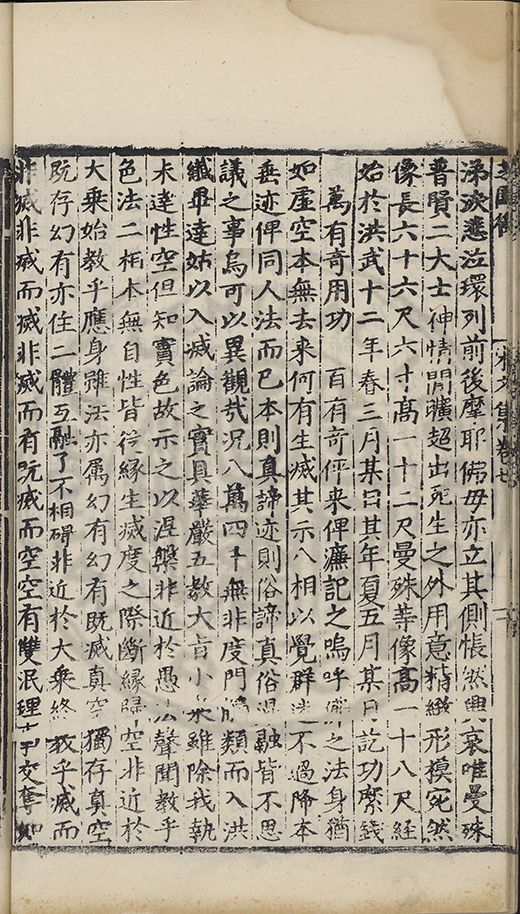 宋文集卷七
涕淚悲泣環列前後摩耶佛母亦立其側悵然興哀唯曼殊
普賢二大士神情閒曠超出死生之外用意精緻形模宛然
像長六十六尺六寸高一十二尺曼殊等像高一十八尺經
始於洪武十二年春三月某日其年夏五月某月訖功縻錢
萬有奇用功 百有奇伻来俾濂記之嗚呼佛之法身猶
如虛空本無去来何有生滅其示八相以覺群迷不過降本
垂迹俾同人法而已本則真諦迹則俗諦真俗混融皆不思
議之事烏可以異觀哉况八萬四千無非度門隨類而入洪
纖畢達姑以入滅論之實具華嚴五教大旨小乘雖除我執
未達性空但知實色故示之以涅槃非近於愚法聲聞教乎
色法二相本無自性皆從緣生滅度之際斷緣歸空非近於
大乘始教乎應身雖法亦属幻有幻有既滅真空獨存真空
既存幻有亦住二體互融了不相礙非近於大乘終教乎滅而
非滅非滅而滅非滅而有既滅而空空有雙泯理 交奪如